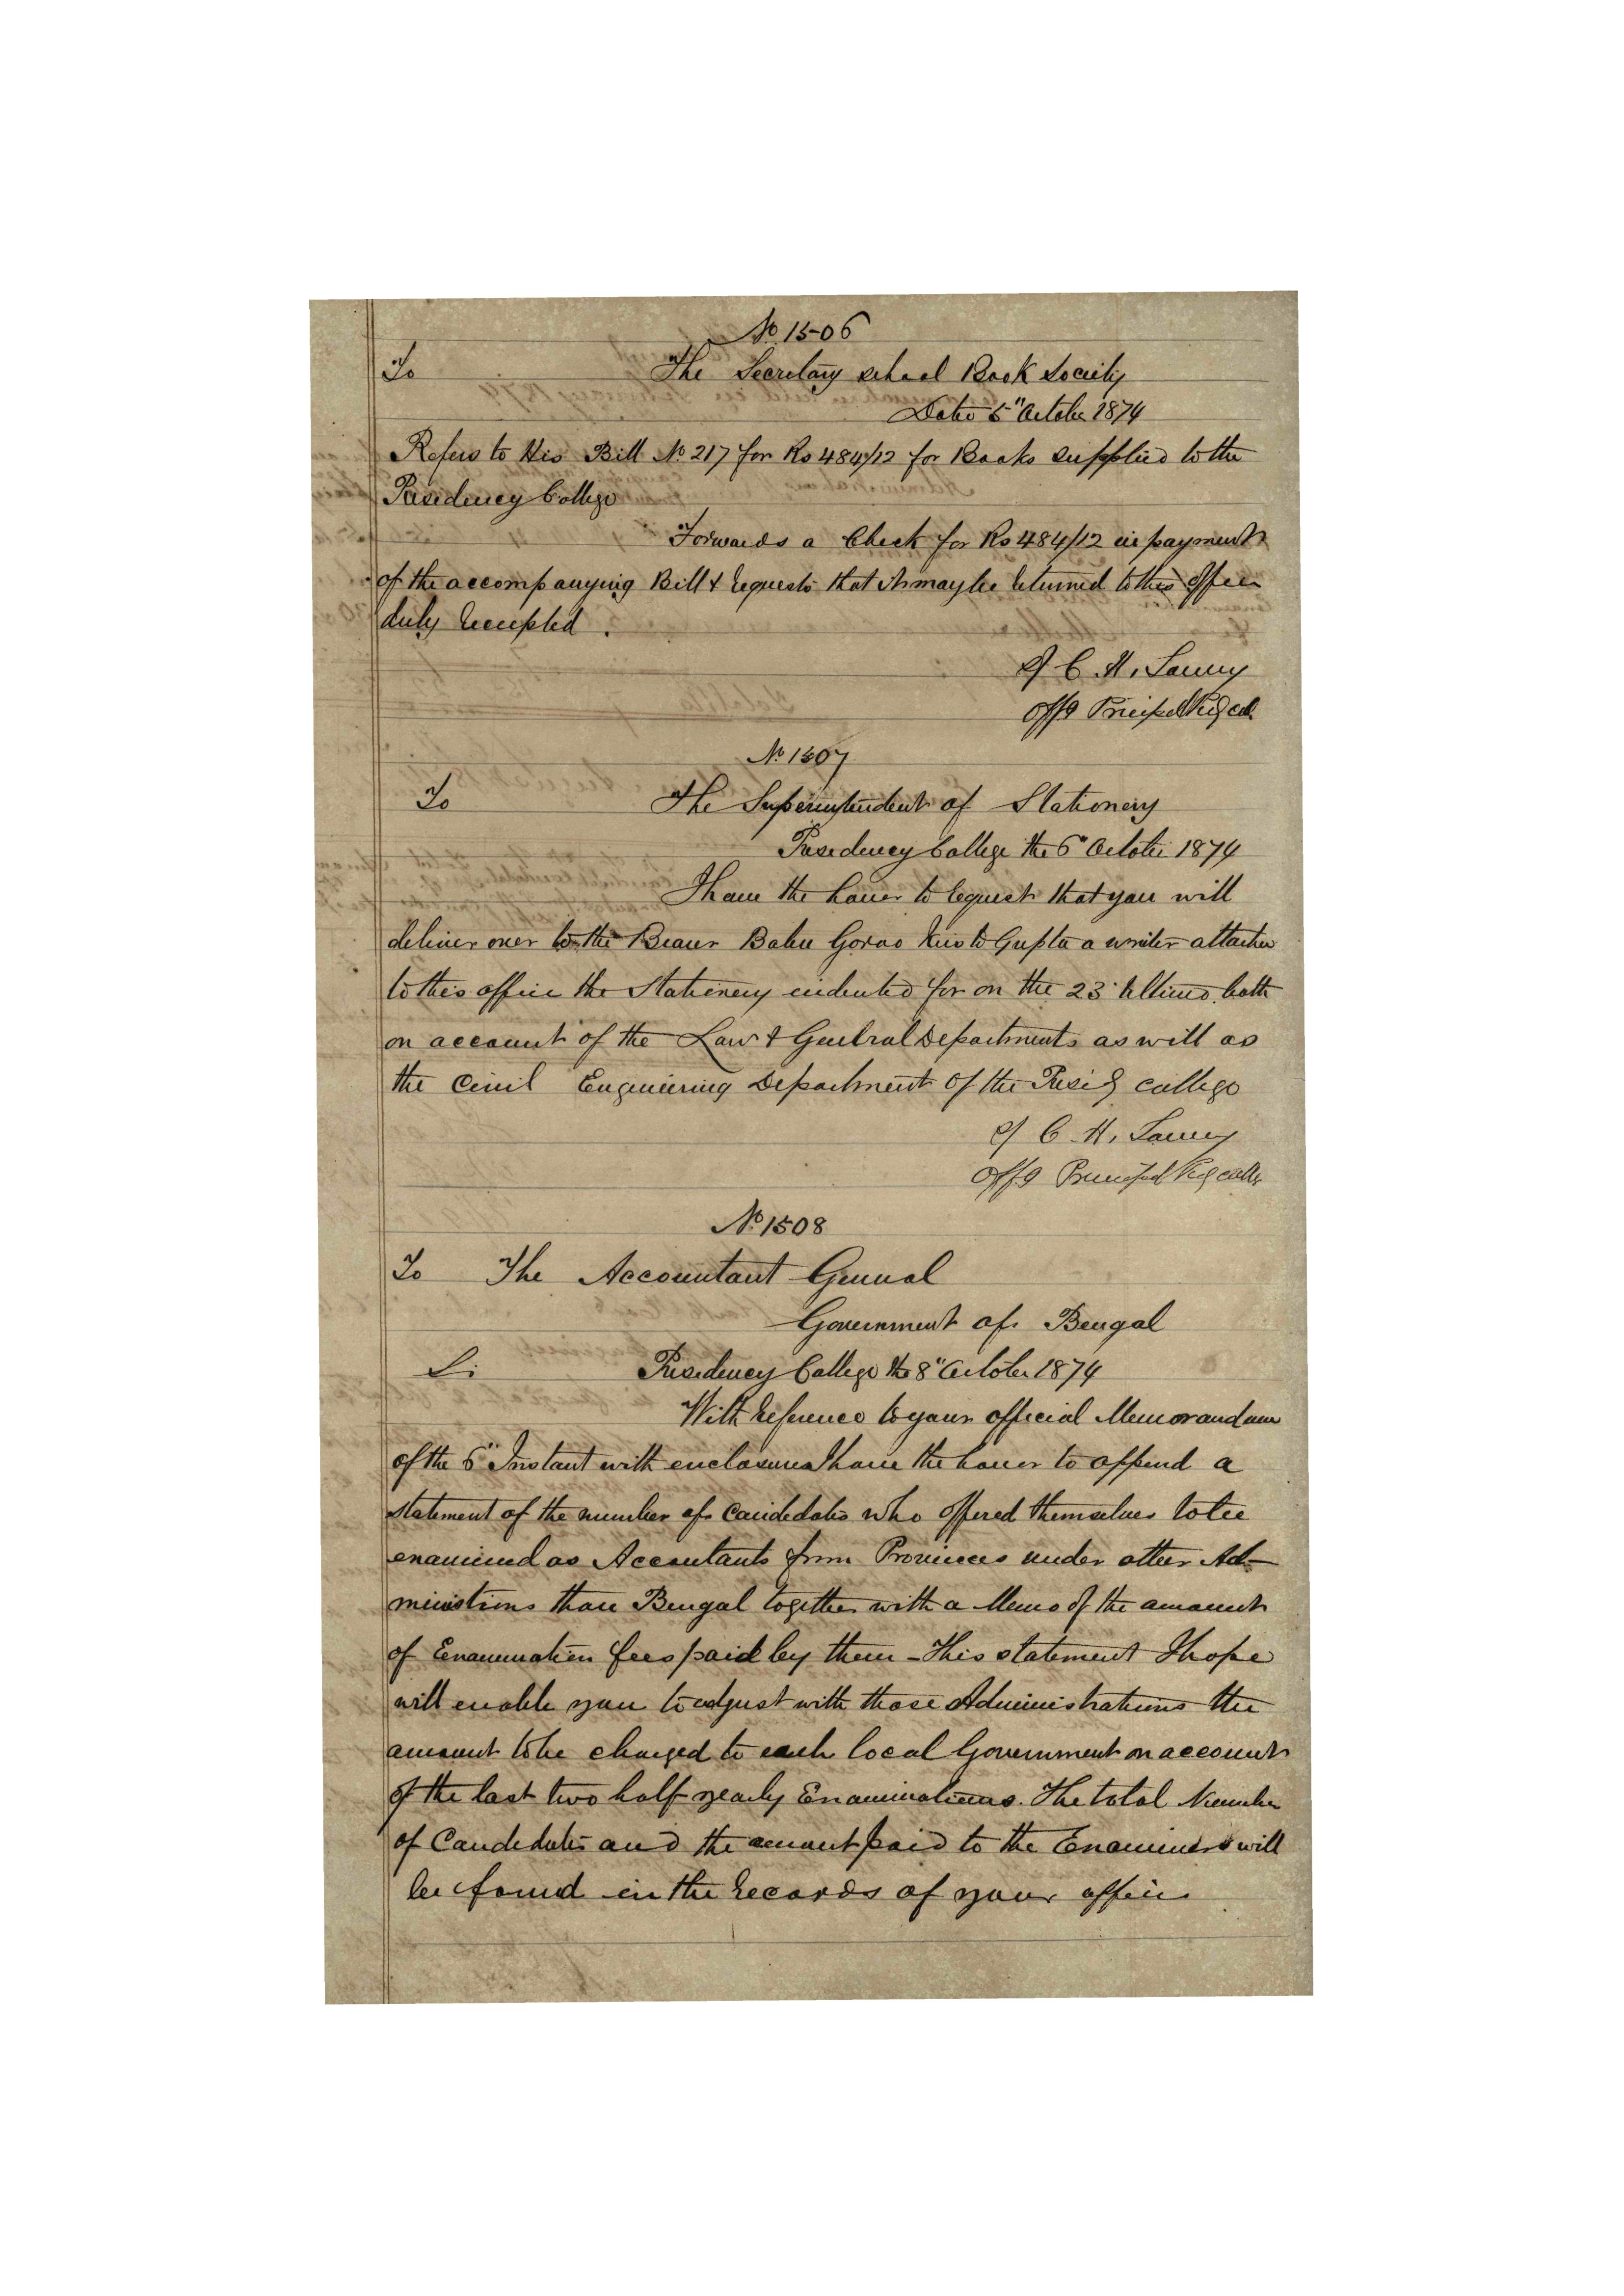 No 1506
To The Secretary School Book Society
Date 5" October 1874
Refers to His Bill No 217 for Rs 484/12 for Books supplied to the
Presidency College
Forwards a Check for Rs 484/12 in payment
of the accompanying Bill & requests that it may be returned to this office
duly receipted.
C. H.
Offg Principal
No 1507
To The Superintendent of Stationery
Presidency College the 6" October 1874
I have the honor to request that you will
deliver over to the Bearer Babu Kristo Gupta a writer attached
to this office the Stationery indented for on the 23 Ultimo both
on account of the Law & General Departments as well as
the Civil Engineering Department of the Presidy College
C. H.
Offg Principal
No 1508
To The Accountant General
Government of Bengal
Sir Presidency College the 8" October 1874
With reference to your official Memorandum
of the 6" Instant with enclosure I have the honor to append a
statement of the number of Candidates who offered themselves to be
examined as Accountants from Provinces under other Ad-
ministions than Bengal together with a Memo of the amount
of Examination fees paid by them - This statement I hope
will enable you to adjust with those Administrations the
amount to be charged to each local Government on account
of the last two half yearly Examinations. The total Number
of Candidates and the amount paid to the Examiners will
be found in the records of your office